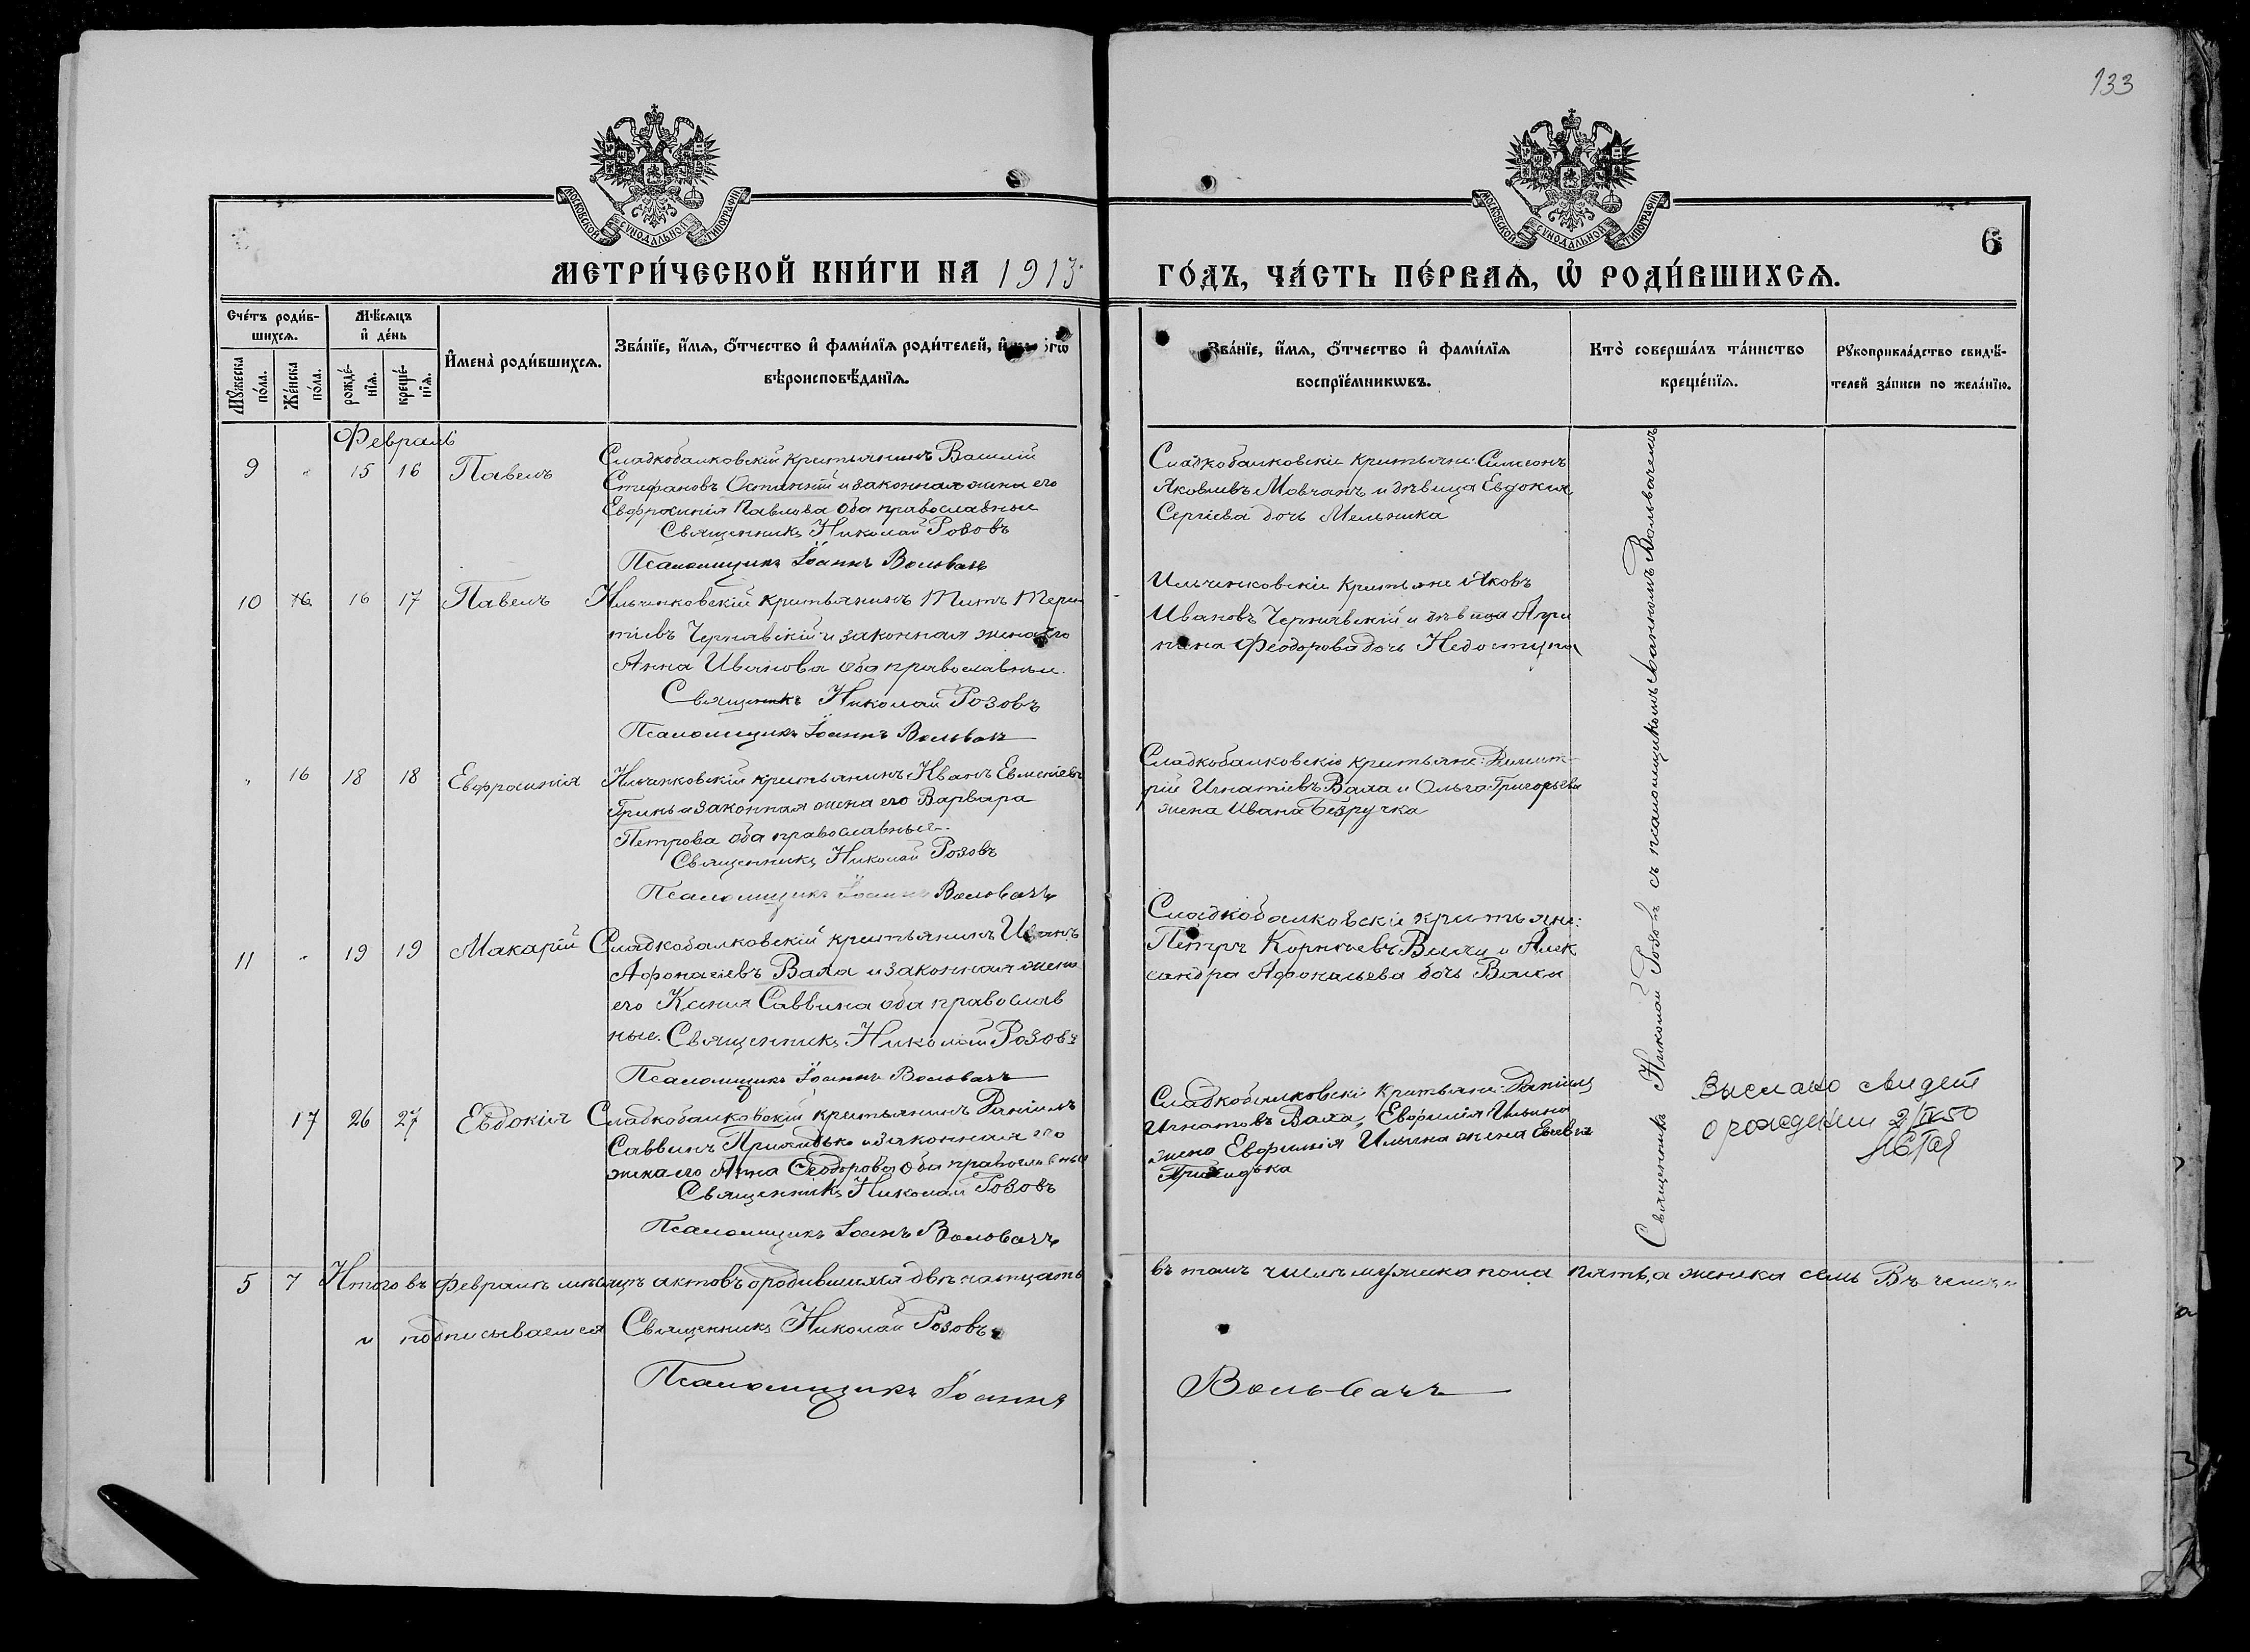 133
МОСКОВСКОЙ СѴНОДАЛЬНОЙ ТИПОГРАФІИ
МОСКОВСКОЙ СѴНОДАЛЬНОЙ ТИПОГРАФІИ
6
МЕТРИ́ЧЕСКОЙ КНИ́ГИ НА 1913
ГО́ДЪ, ЧА́СТЬ ПЕ́РВАѦ, Ѡ҆ РОДИ́ВШИХСѦ.
Сче́тъ роди́в-
шихсѧ.
Мѣ́сѧцъ
и҆ де́нь
Мꙋ́жеска
по́ла.
Же́нска
по́ла.
рожде́-
нїѧ.
креще́-
нїѧ.
И҆мена̀ роди́вшихсѧ.
Зва́нїе, и҆́мѧ, ѻ҆́тчество и҆ фами́лїѧ роди́телей, и҆
вѣроисповѣ́данїѧ.
Зва́нїе, и҆́мѧ, ѻ҆́тчество и҆ фами́лїѧ
воспрїе́мникѡвъ.
Кто̀ соверша́лъ та́инство
креще́нїѧ.
Рꙋкоприкла́дство свидѣ́-
телей за́писи по жела́нїю.
Февраль
9 " 15 16 Павелъ
Сладкобалковскій крестьянинъ Василій
Стефановъ Остапній и законная жена его
Евфросинія Павлова оба православные
Священникъ Николай Розовъ
Псаломщикъ Іоаннъ Вольвачъ
Сладкобалковскіе крестьяне: Симеонъ
Яковлевъ Мовчанъ и дѣвица Евдокія
Сергіева дочь Мельника
10 16 16 17 Павелъ
Ильченковскій крестьянинъ Титъ Терен
тіевъ Чернявскій и законная жена его
Анна Иванова оба православные.
Священникъ Николай Розовъ
Псаломщикъ Іоаннъ Вольвачъ
Ильченковскіе крестьяне Іяковъ
Ивановъ Чернявскій и дѣвица Агри
пина Феодорова дочь Недоступа
" 16 18 18 Евфросинія
Ильченковскій крестьянинъ Иванъ Евменіевъ
Гринь и законная жена его Варвара
Петрова оба православные.
Священникъ Николай Розовъ
Псаломщикъ Іоаннъ Вольвачъ
Сладкобалковскіе крестьяне: Димит-
рій Игнатіевъ Вала и Ольга Григорьева
жена Ивана Безручка
11 " 19 19 Макарій
Сладкобалковскій крестьянинъ Иванъ
Афонасіевъ Вала и законная жена
его Ксенія Саввина оба православ
ные. Священникъ Николай Розовъ
Псаломщикъ Іоаннъ Вольвачъ
Сладкобалковскіе крестьяне:
Петръ Корнѣевъ и Алек
сандра Афонасьева дочь Валы
17 26 27 Евдокія
Сладкобалковскій крестьянинъ Даніилъ
Саввинъ и законная его
жена его Анна Феодорова оба православные
Священникъ Николай Розовъ
Псаломщикъ Іоаннъ Вольвачъ
Сладкобалковскіе крестьяне: Даніилъ
Игнатовъ Вала, Евфимія Ильина
жена Евфимія Ильина жена
Священникъ Николай Розовъ съ псаломщикомъ Іоанномъ Вольвачемъ
Выслано свидет
о рождении 2/IX 50
5 7 Итого въ Февралѣ мѣсяцѣ актовъ о родившихся двѣнатцать
въ томъ числѣ мужеска пола пять, а женска семь Въ чемъ
и подписываемся Священникъ Николай Розовъ
Псаломщикъ Іоаннъ
Вольвачъ